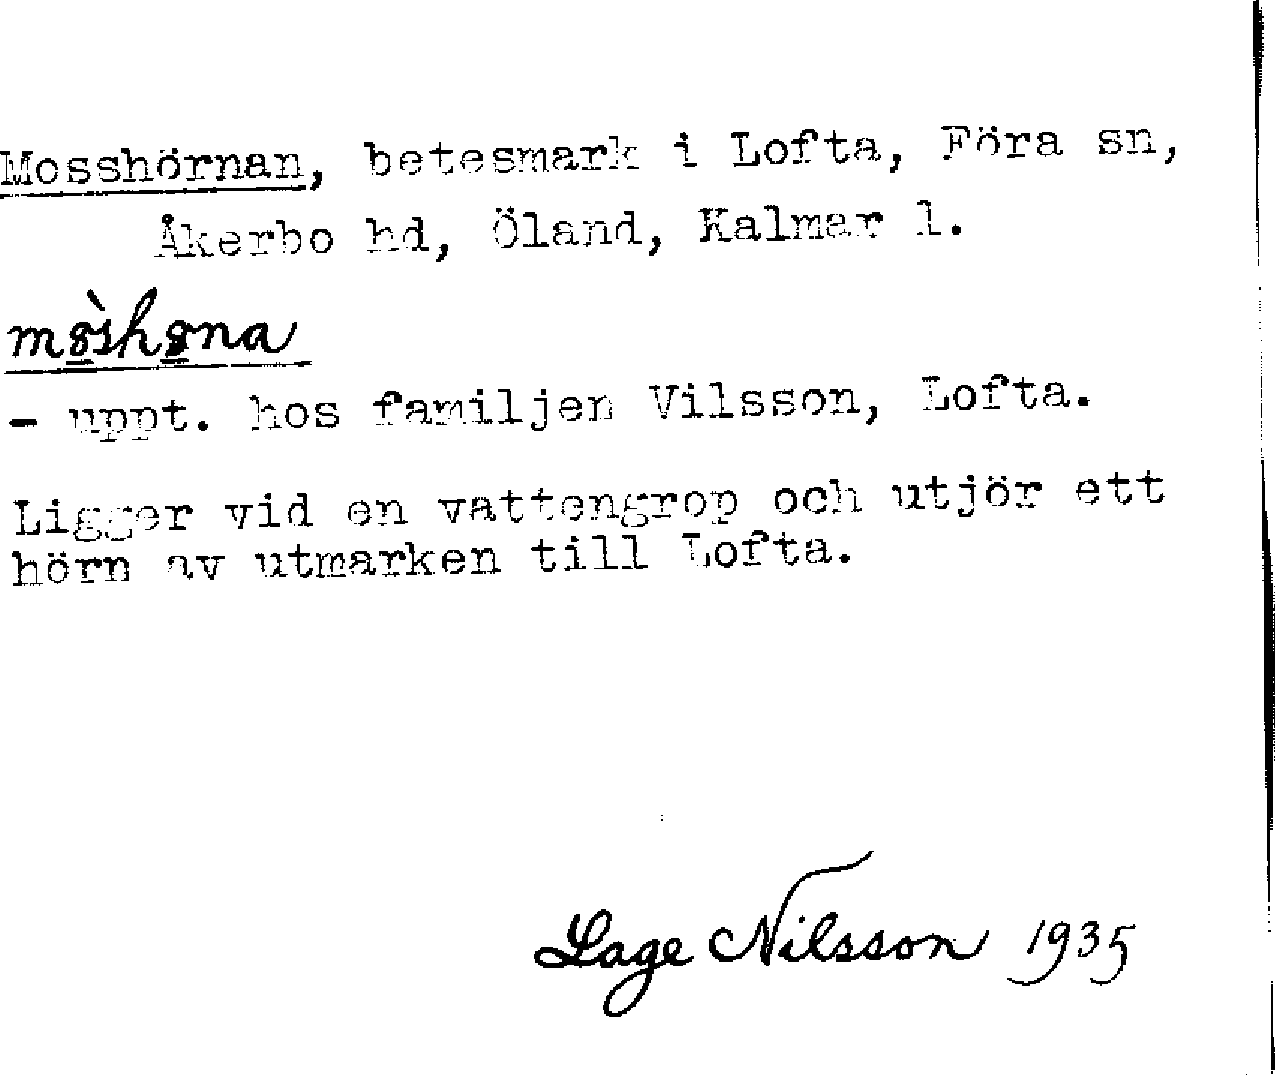 Mosshörnan, betesmark i Lofta, Föra sn,
Åkerbo hd, Öland, Kalmar l.
– uppt. hos familjen Vilsson, Lofta.
Ligger vid en vattengrop och utjör ett
hörn av utmarken till Lofta.
Lage Nilsson 1935